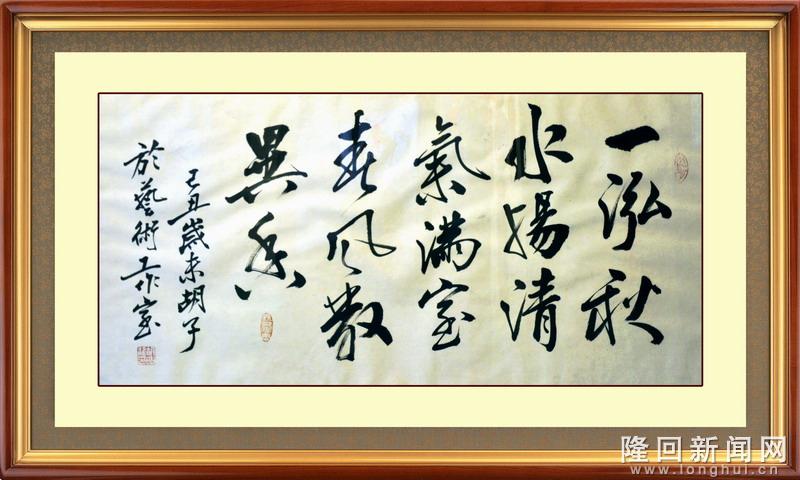 一泓秋
水揚清
氣滿室
春風散
異香
己丑歲末胡子
於藝術工作室
隆回新闻网
www.longhui.cn